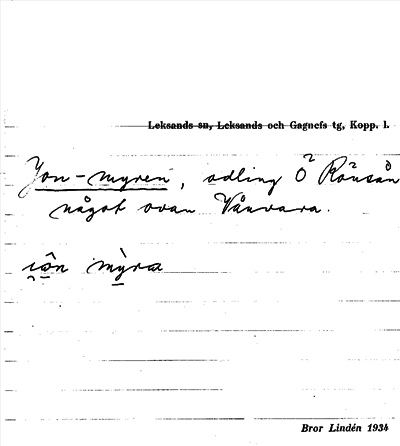 Leksands sn, Leksands och Gagnefs tg, Kopp. l.
Jon-myren, odling Ö Rönsån
något ovan Vånvara.
Bror Lindén 1934